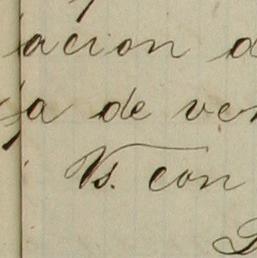 acion d
a de ver
Vs. con